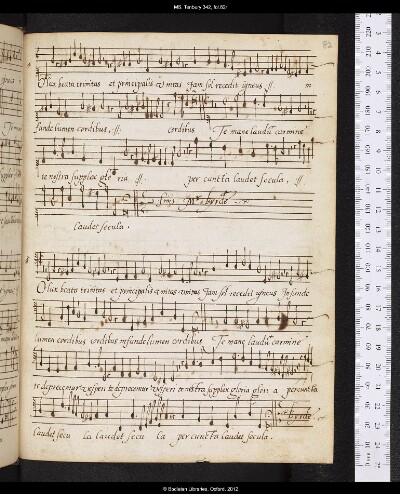 MS. Tenbury 342, fol.82r
82
O lux beata trinitas et principalis unitas Iam sol recedit igneus :||: in
funde lumen cordibus, :||: cordibus Te mane laudū carmine
te nostra supplex glo ria. :||: per cuncta laudet secula. :||:
finis Mr. byrde
laudet secula.
O lux beata trinitas et principalis unitas unitas Iam sol recedit igneus Infunde
lumen cordibus cordibus infunde lumen cordibus Te mane laudū carmine
te deprecemur vesperi te deprecemur vesperi te nostra supplex gloria glori a per cuncta
byrde
laudet secu la laudet secu la per cuncta laudet secula.
© Bodleian Libraries, Oxford, 2012